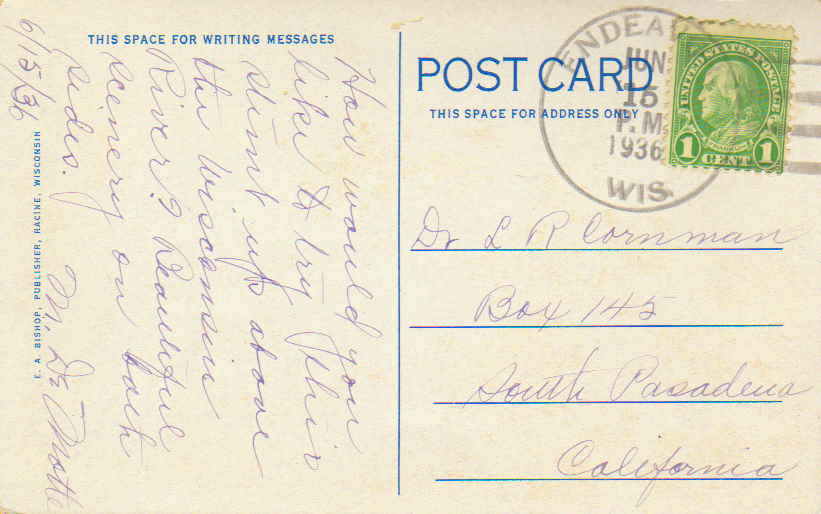 THIS SPACE FOR WRITING MESSAGES
6/15/36
How would you
like to try this
stunt up above
the Wisconsin
River? Beautiful
scenery on both
sides.
E. A. BISHOP, PUBLISHER, RACINE, WISCONSIN
POST CARD
THIS SPACE FOR ADDRESS ONLY
JUN
15
P.M.
1936
WIS.
UNITED STATES POSTAGE
FRANKLIN
1 CENT 1
Dr L R Cornman
Box 145
South Pasadena
California